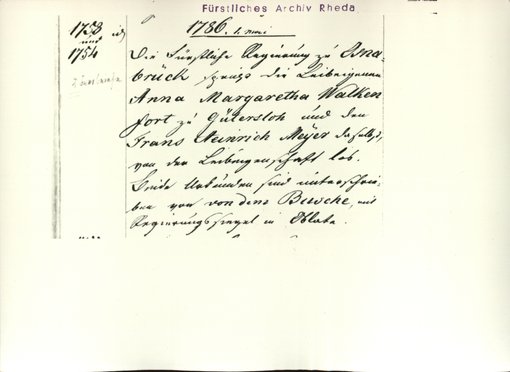 Fürstliches Archiv Rheda
1753 und 1754
1786. 1. Mai
Die Fürstliche Regierung zu Osna-
brück spricht die Leibeigenen
Anna Margaretha Walken
fort zu Gütersloh und den
Frans Heinrich Meyer daselbst,
von der Leibeigenschaft los.
Beide Urkunden sind unterschrie-
ben von von dem Bussche, mit
Regierungssiegel in Oblate.